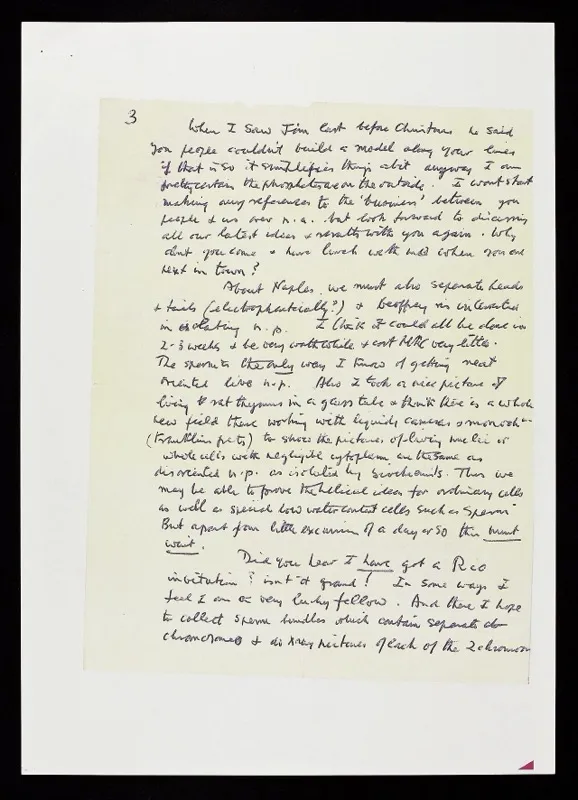 3
When I saw Jim last before Christmas he said
you people couldn't build a model along your lines
if that is so it simplifies things a bit anyway I am
pretty certain the phosphates are on the outside. I wont start
making any references to the 'business' between you
people & us over n.a. but look forward to discussing
all our latest ideas & results with you again. Why
dont you come & have lunch with me when you are
next in town?
About Naples, we must also separate heads
& tails (electrophoretically?) & Geoffrey is interested
in isolating n.p. I think it could all be done in
2-3 weeks & be very worth while & cost MRC very little.
The sperm is the only way I know of getting neat
oriented live n.p. Also I took a nice picture of
living rat thymus in a glass tube & think there is a whole
new field there working with liquids cameras & monoch-
(Franklin pets) to show the pictures of living nuclei or
whole cells with negligible cytoplasm are the same as
disoriented n.p. as isolated by biochemists. Thus we
may be able to prove the helical ideas for ordinary cells
as well as special low water content cells such as sperm
But apart from little excursion of a day or so this must
wait.
Did you hear I have got a Rio
invitation? isnt it grand! In some ways I
feel I am a very lucky fellow. And there I hope
to collect sperm bundles which contain separate
chromosomes & do Xray pictures of each of the 2 chromosom